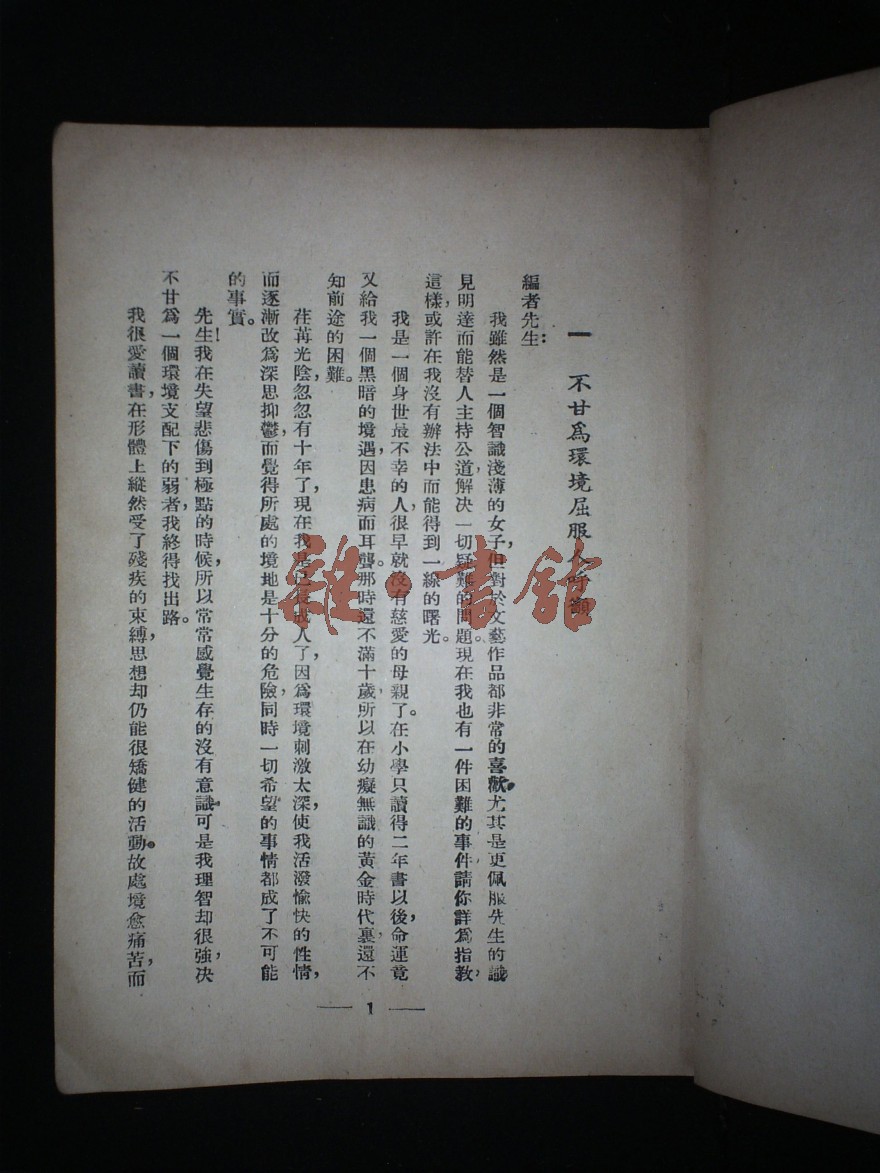 一 不甘爲環境屈服
編者先生：
我雖然是一個智識淺薄的女子，但對於文藝作品都非常的喜歡。尤其是更佩服先生的識
見明達而能替人主持公道，解决一切疑難的問題。現在我也有一件困難的事件，請你詳爲指教，
這樣，或許在我沒有辦法中而能得到一線的曙光。
我是一個身世最不幸的人，很早就沒有慈愛的母親了。在小學只讀得二年書以後，命運竟
又給我一個黑暗的境遇，因患病而耳聾。那時還不滿十歲，所以在幼癡無識的黃金時代裏，還不
知前途的困難。
荏苒光陰，忽忽有十年了，現在我是已長成人了，因爲環境刺激太深，使我活潑愉快的性情，
而逐漸改爲深思抑鬱，而覺得所處的境地是十分的危險，同時一切希望的事情都成了不可能
的事實。
先生！我在失望悲傷到極點的時候，所以常常感覺生存的沒有意識，可是我理智却很強，决
不甘爲一個環境支配下的弱者，我終得找出路。
我很愛讀書，在形體上縱然受了殘疾的束縛，思想却仍能很矯健的活動。故處境愈痛苦，而
— 1 —
雜·書館